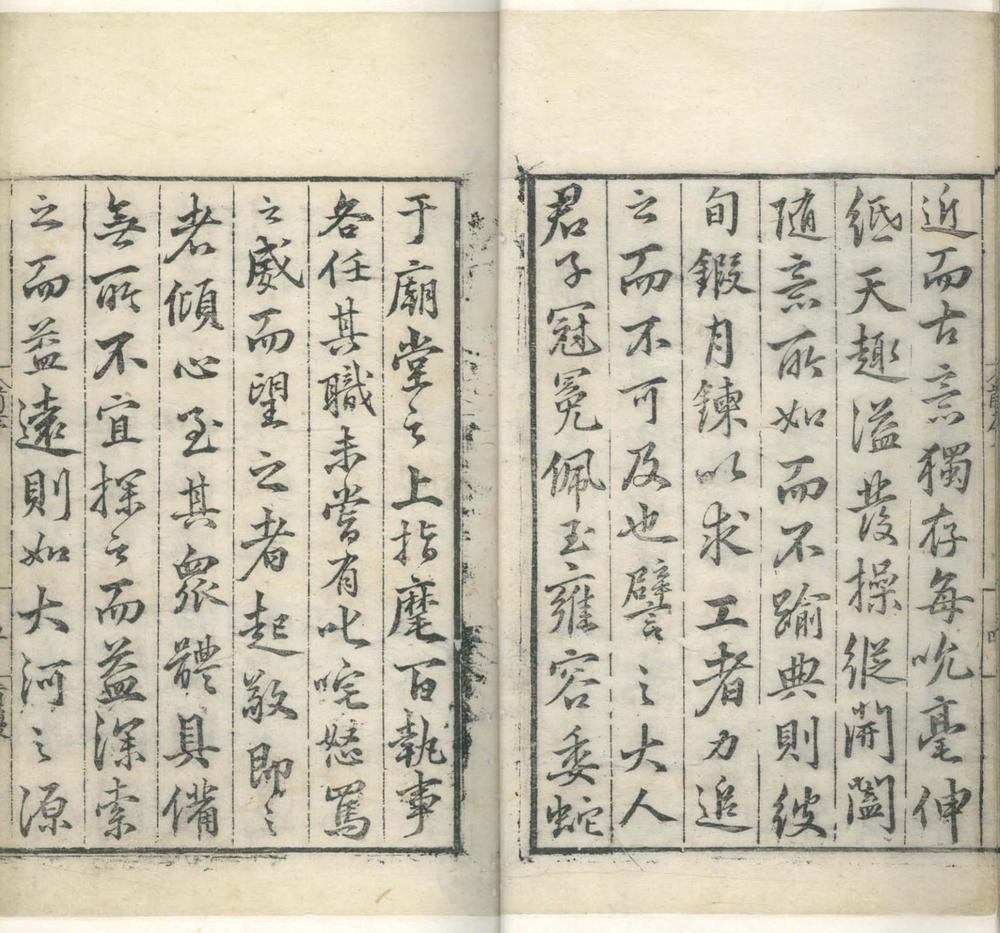 近而古意獨存每吮毫伸
紙天趣溢發操縱開闔
隨意所如而不踰典則彼
旬鍛月鍊以求工者力追
之而不可及也譬之大人
君子冠冕佩玉雍容委蛇
于廟堂之上指麾百執事
各任其職未嘗有叱咤怒罵
之威而望之者起敬即之
者傾心至其眾體具備
無所不宜探之而益深索
之而益遠則如大河之源